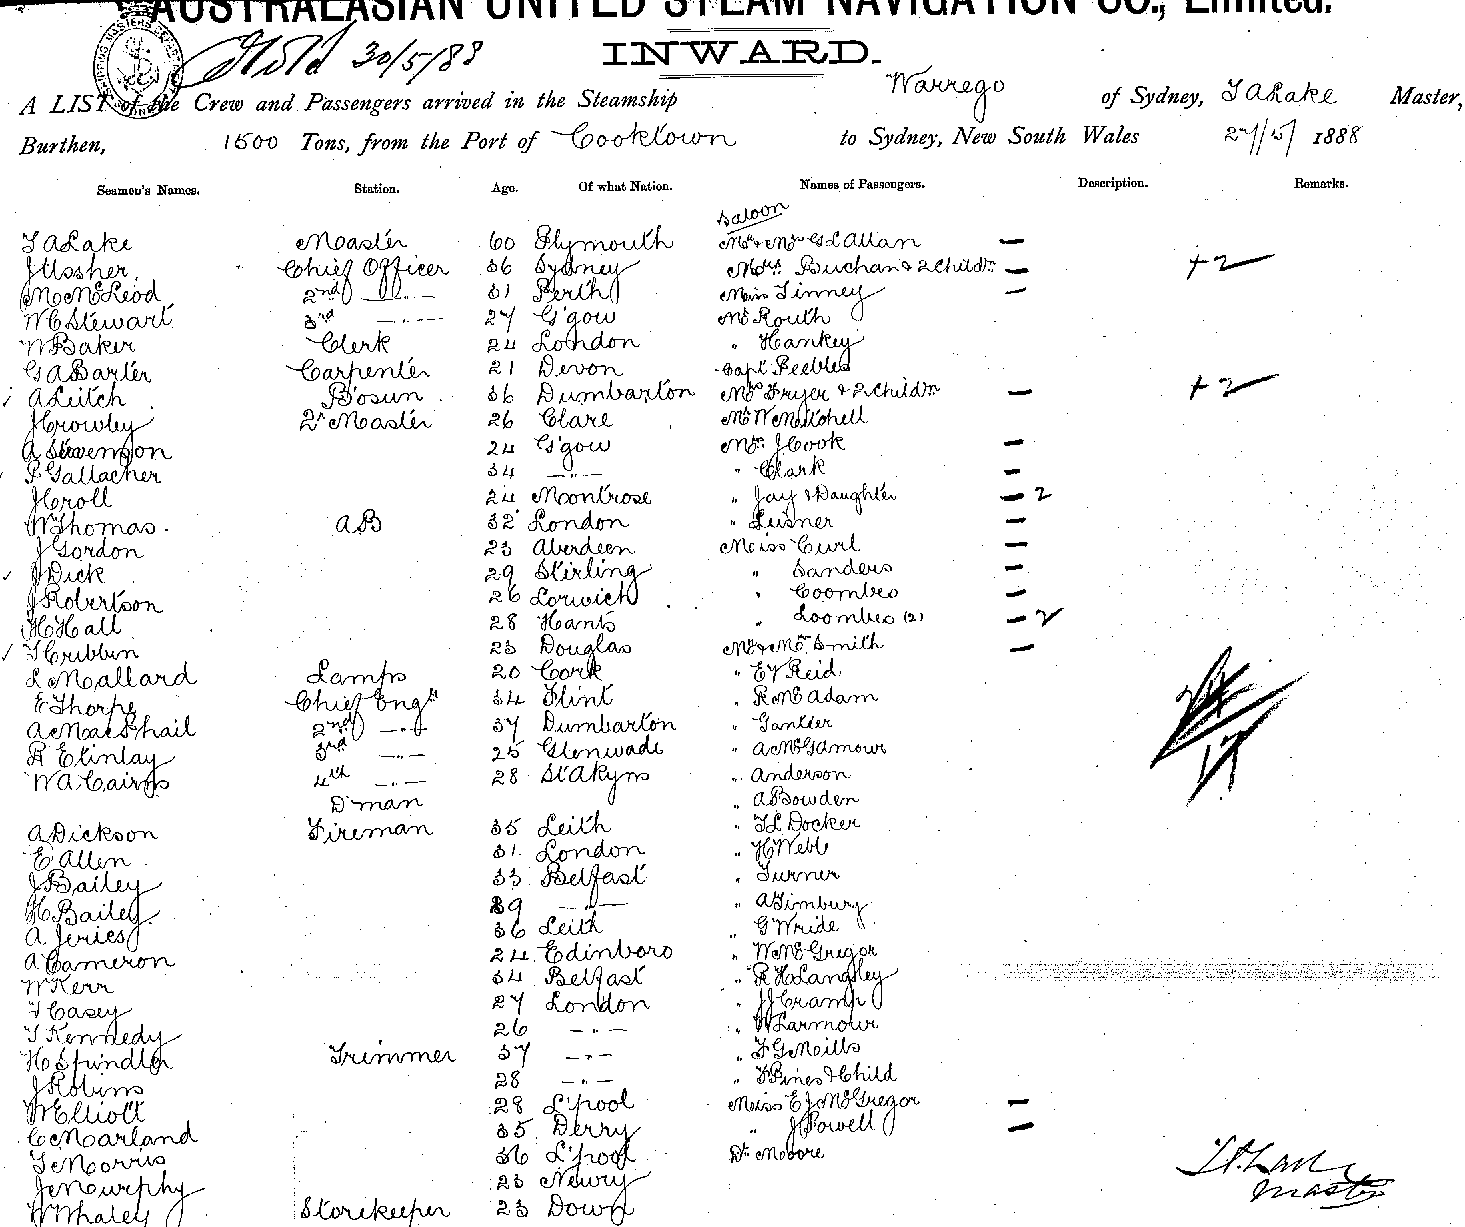 AUSTRALASIAN UNITED STEAM NAVIGATION CO., Limited.
30/5/88 INWARD.
A LIST of the Crew and Passengers arrived in the Steamship Warrego of Sydney, T A Lake Master,
Burthen, 1500 Tons, from the Port of Cooktown to Sydney, New South Wales 27/5/ 1888
Seamen's Names. Station. Age. Of what Nation. Names of Passengers. Description. Remarks.
Saloon
T A Lake Master 60 Plymouth Mr & Mrs G L Allan —
J Ussher Chief Officer 36 Sydney Mrs. Buchan & 2 Childn — + 2
M McLeod 2nd —"— 31 Perth Miss Tinney —
W C Stewart 3rd —"— 27 G'gow Mr Routh
W Baker Clerk 24 London " Hankey
G A Barter Carpenter 21 Devon Capt Peebles
A Leitch Bosun 36 Dumbarton Mrs Fryer & 2 Childn — + 2
J Crowley 2r Master 26 Clare Mr W Mitchell
A Stevenson 24 G'gow Mrs J Cook —
P Gallacher 34 —"— " Clark —
J Croll 24 Montrose " Jay & Daughter — 2
W Thomas AB 32 London " Leisner —
J Gordon 23 Aberdeen Miss Curl —
J Dick 29 Stirling " Sanders —
J Robertson 26 " Coombes —
H Hall 28 Hants " Loombes (2) — 2
T Cribbin 23 Douglas Mr & Mrs Smith —
L Mallard Lamps 20 Cork " E V Reid
E Thorpe Chief Engr 34 Flint " R McAdam
A MacPhail 2nd —"— 37 Dumbarton "
R E 3rd —"— 25 " A McGamour
W A Cairns 4th —"— 28 " Anderson
D'man " A Bowden
A Dickson Fireman 35 Leith " T L Docker
E Allen 31 London " H Webb
J Bailey 33 Belfast " Turner
H Bailey 39 —"— " A Timbury
A 36 Leith " G Wride
A Cameron 24 Edinboro " W McGregor
W Kerr 34 Belfast " R H Langley
T Casey 27 London " J J Cramp
T Kennedy 26 —"— " W Larmour
H Spindler Trimmer 37 —"— " F G Meills
J Robins 28 —"— " F Pines & Child
W Elliott 28 L'pool Miss E J McGregor —
C Marland 35 Derry " J Powell —
T Morris 36 L'pool Dr Moore
J Murphy 23 Newry
W Whaley Storekeeper 23 Down
17
Master